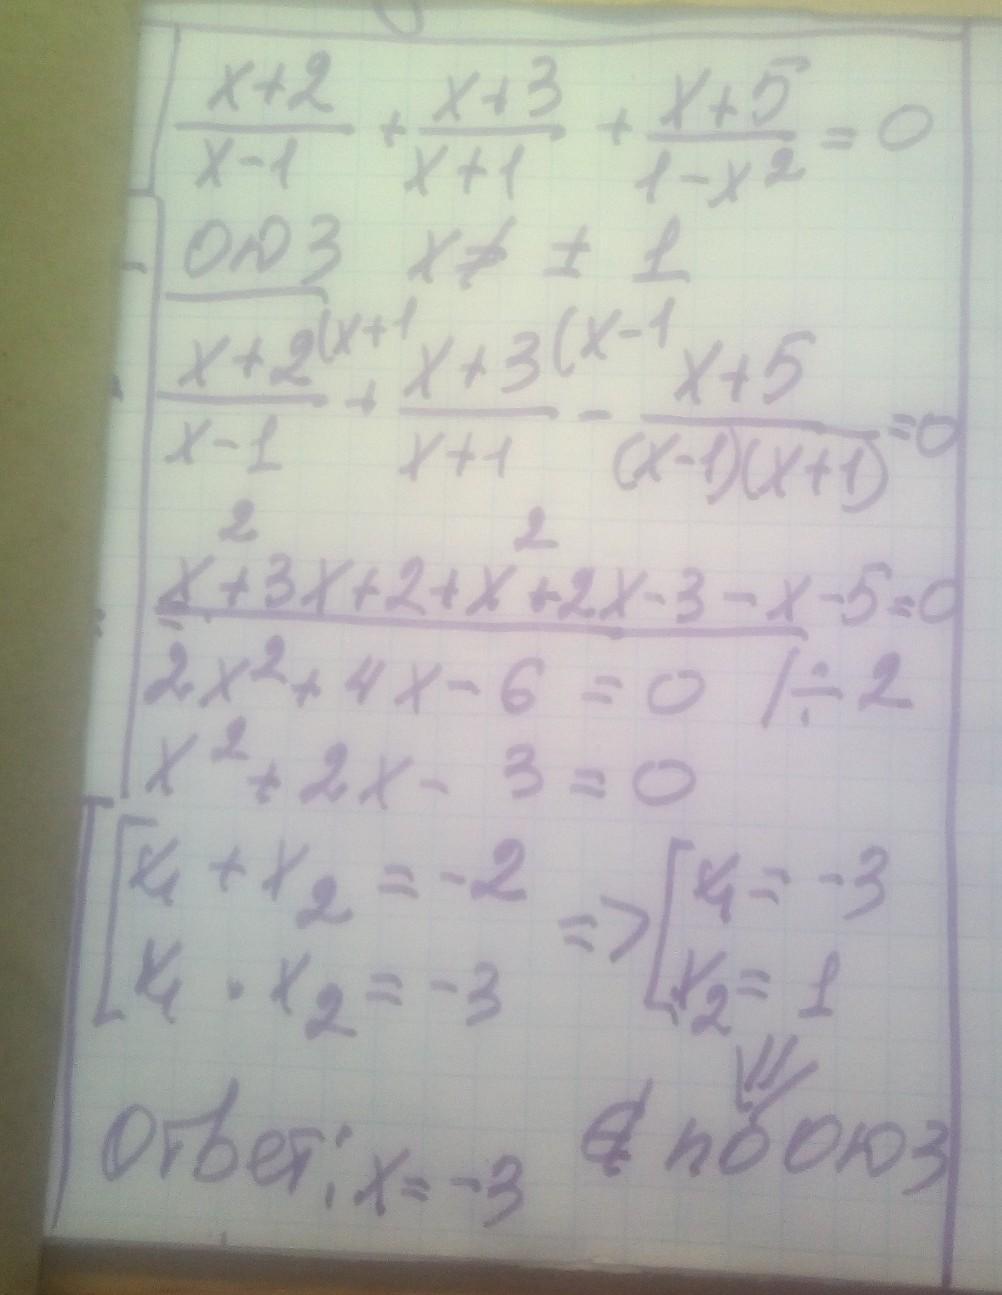 x+2/x-1 + x+3/x+1 + x+5/1-x² = 0
ОДЗ x ≠ ± 1
x+2(x+1/x-1 + x+3(x-1/x+1 - x+5/(x-1)(x+1) =0
x²+3x+2+x²+2x-3-x-5=0
2x²+4x-6 = 0 /÷2
x²+2x- 3 = 0
[x₁ + x₂ = -2 => [x₁ = -3
x₁ · x₂ = -3 x₂ = 1
Ответ: x= -3 ∉ по ОДЗ